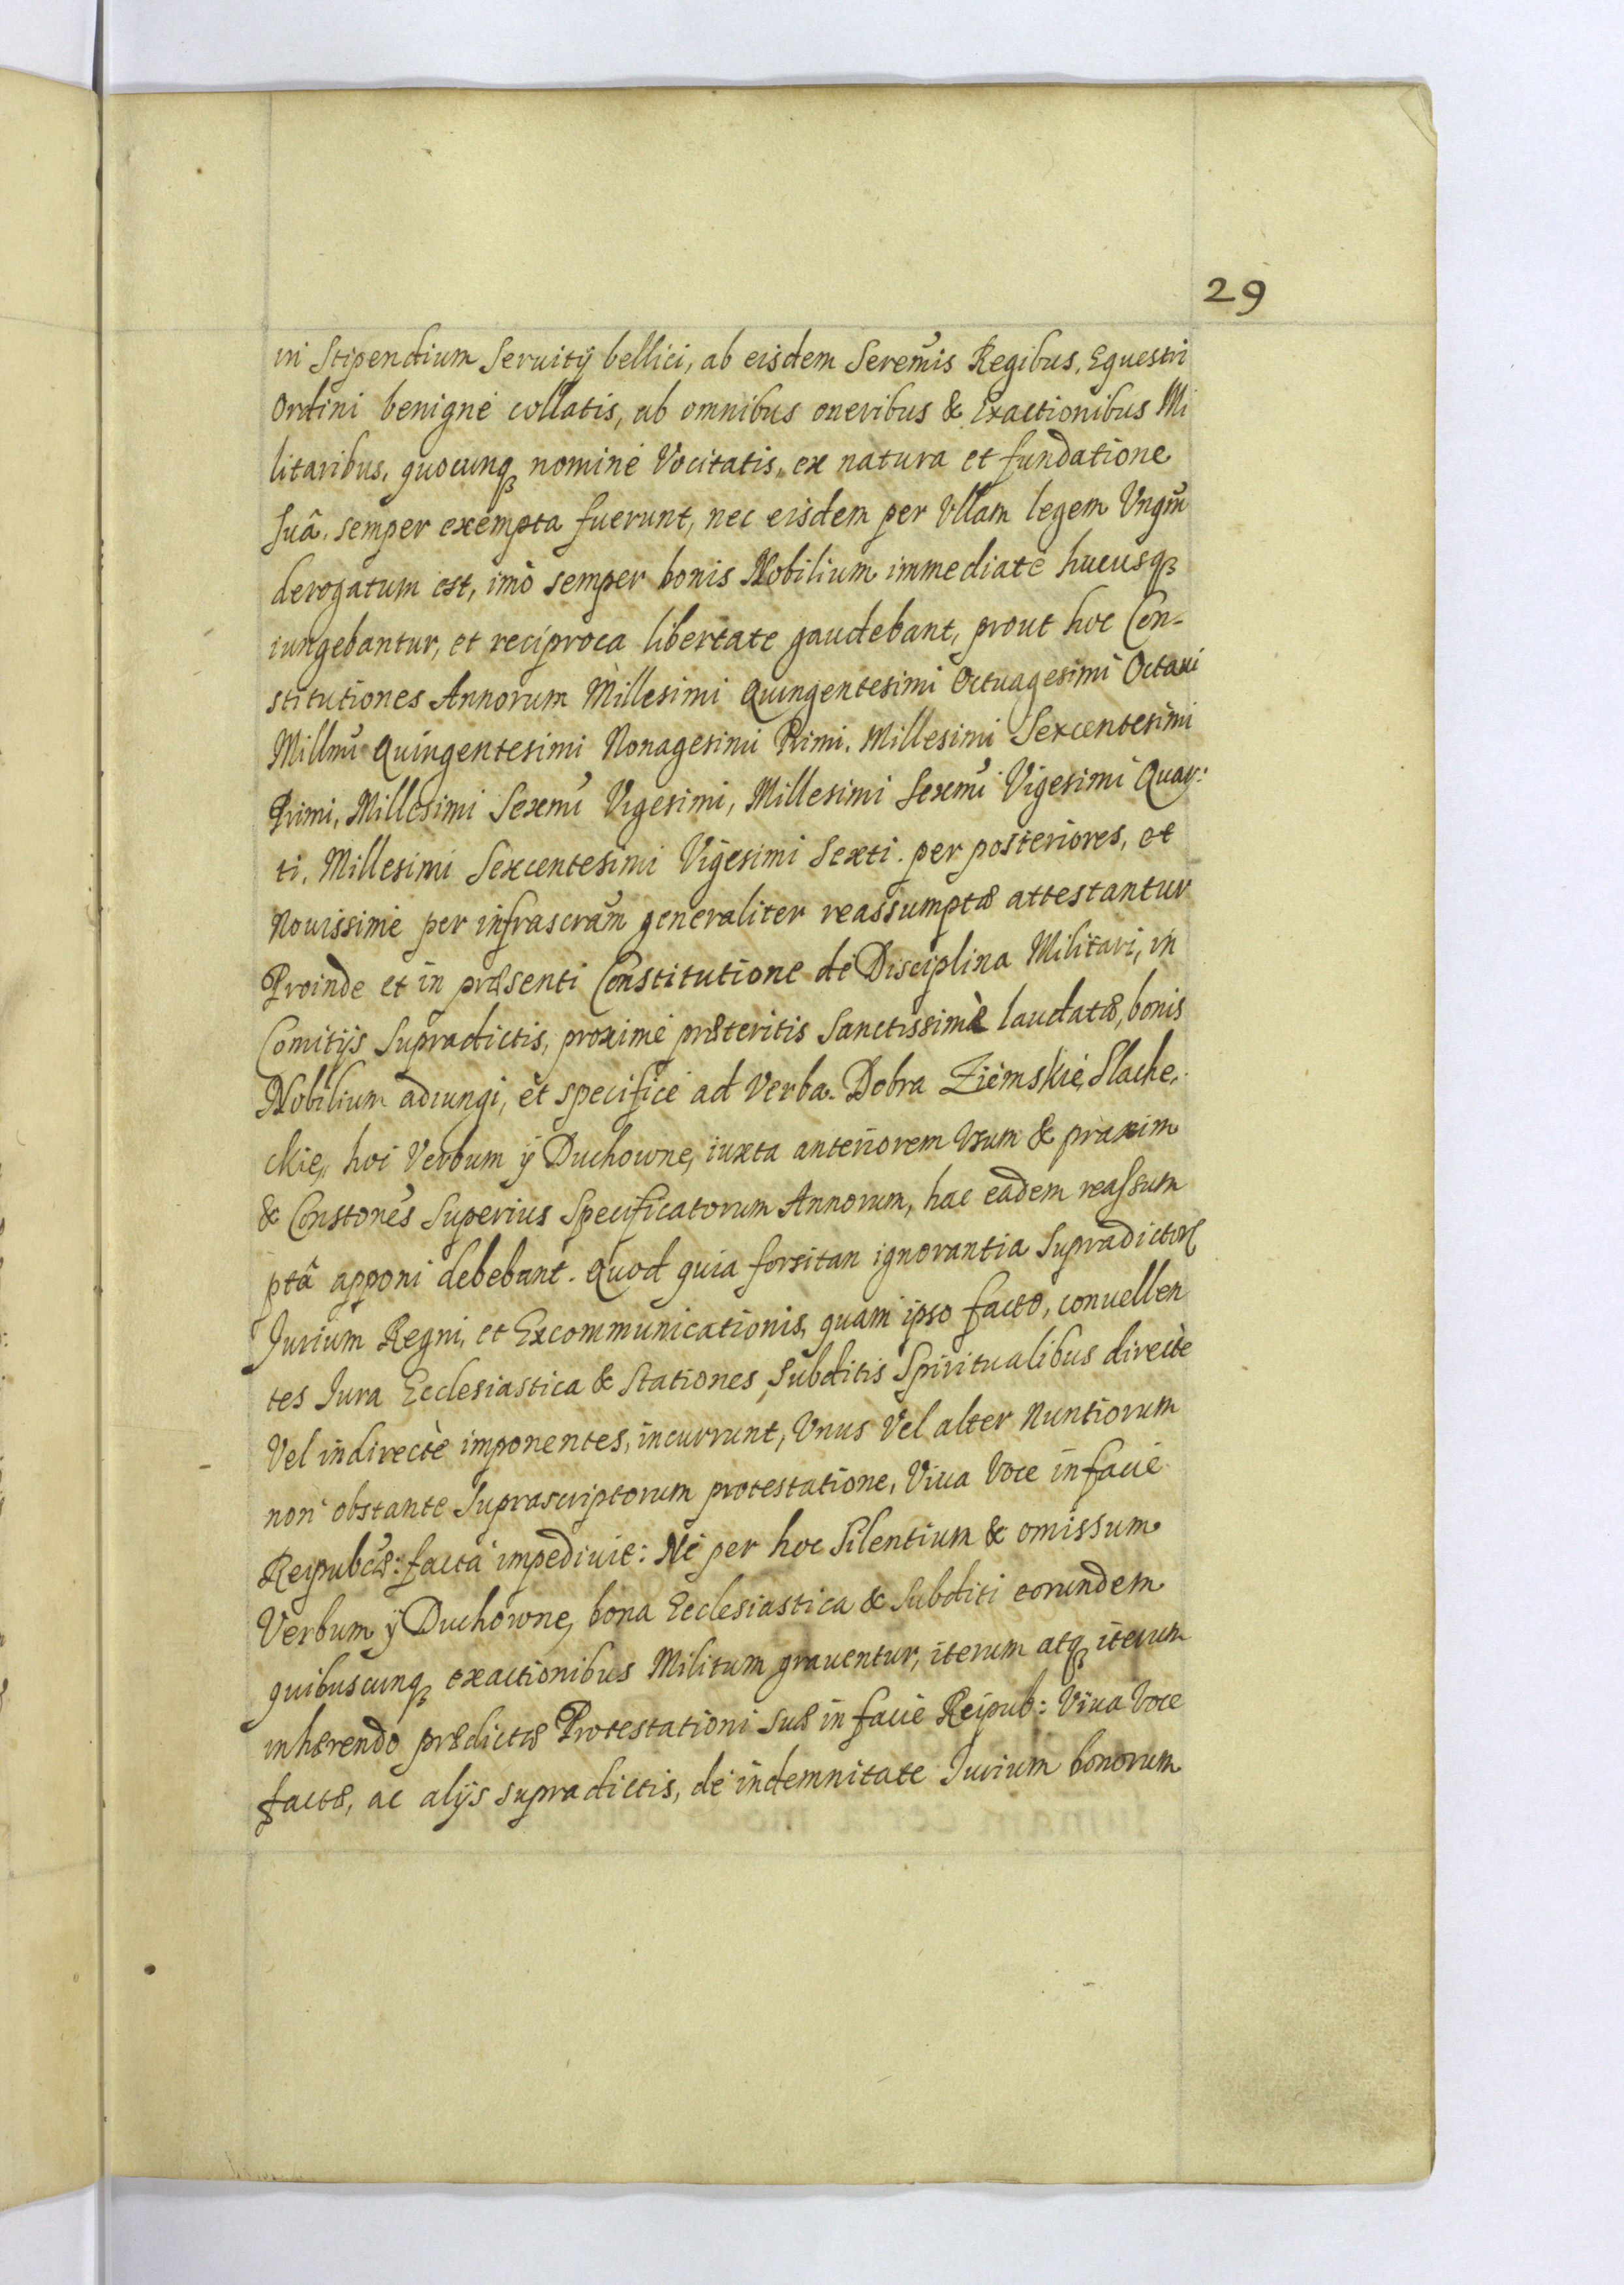 29
in Stipendium Seruitÿ bellici, ab eisdem Serem̃is Regibus, Equestri
Ordini benigne collatis, ab omnibus oneribus & Exactionibus Mi
litaribus, quocunqꝫ nomine Vocitatis, ex natura et fundatione
suâ, semper exempta fuerunt, nec eisdem per Vllam legem Vnqm̃
derogatum est, imò semper bonis Nobilium immediatè hucusqꝫ
iungebantur, et reciproca libertate gaudebant, prout hoc Con-
stitutiones Annorum Millesimi Quingentesimi Octuagesimi Octaui
Millm̃i Quingentesimi Nonagesimi Primi, Millesimi Sexcentesimi
Primi, Millesimi Sexm̃i Vigesimi, Millesimi Sexm̃i Vigesimi Quar:
ti, Millesimi Sexcentesimi Vigesimi Sexti, per posteriores, et
Nouissime per infrascram̃ generaliter reassumptæ attestantur
Proinde et in præsenti Constitutione de Disciplina Militari, in
Comitÿs Supradictis, proxime præteritis Sanctissimè laudatæ, bonis
Nobilium adiungi, et specifice ad Verba. Dobra Ziemskie, Slache,
ckie, hoc Verbum ÿ Duchowne, iuxta anteriorem Vsum & praxim
& Constones̃ Superius Specificatorum Annorum, hac eadem reassum
ptâ apponi debebant. Quod quia forsitan ignorantia Supradictoꝝ
Jurium Regni, et Excommunicationis, quam ipso facto, conuellen
tes Jura Ecclesiastica & Stationes, Subditis Spiritualibus directè
Vel indirectè imponentes, incurrunt, Vnus Vel alter Nuntiorum
non obstante Suprascriptorum protestatione, Viua Voce in facie
Reipubcæ: facta impediuit: Ne per hoc Silentium & omissum
Verbum ÿ Duchowne, bona Ecclesiastica & Subditi eorundem
quibuscunqꝫ exactionibus Militum grauentur, iterum atqꝫ iterum
inhærendo prædictæ Protestationi suæ in facie Reipub: Viua Voce
factæ, ac alÿs supradictis, de indemnitate Jurium bonorum